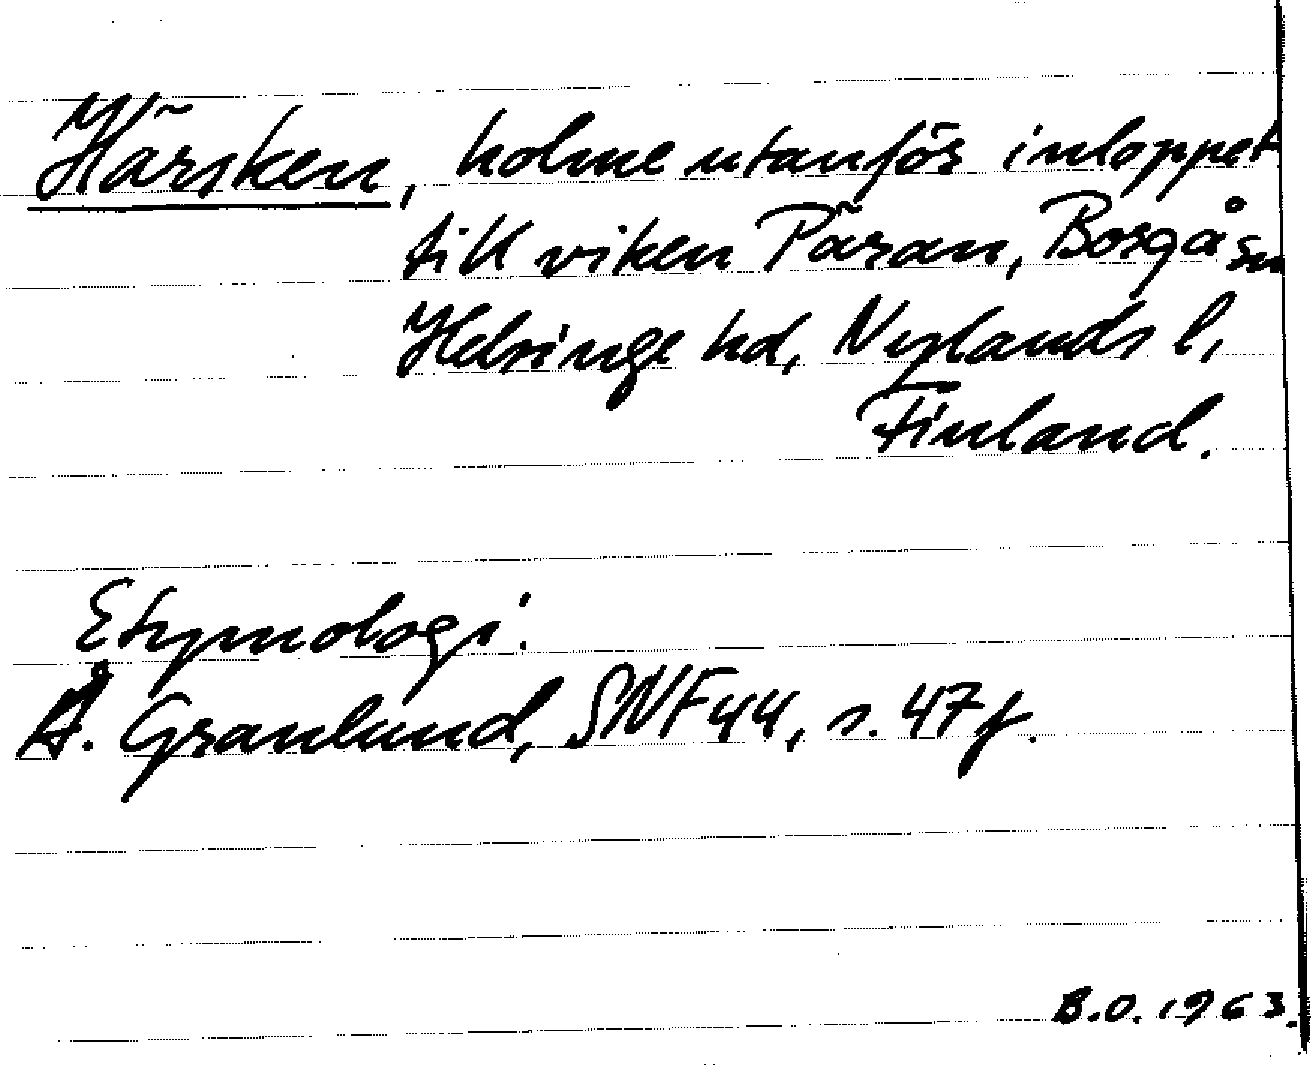 Härsken, holme utanför inloppet
till viken Päran, Borgå sn
Helsinge hd, Nylands l,
Finland.
Etymologi.
Å. Granlund, SNF 44, s. 47 f.
B.O. 1963.